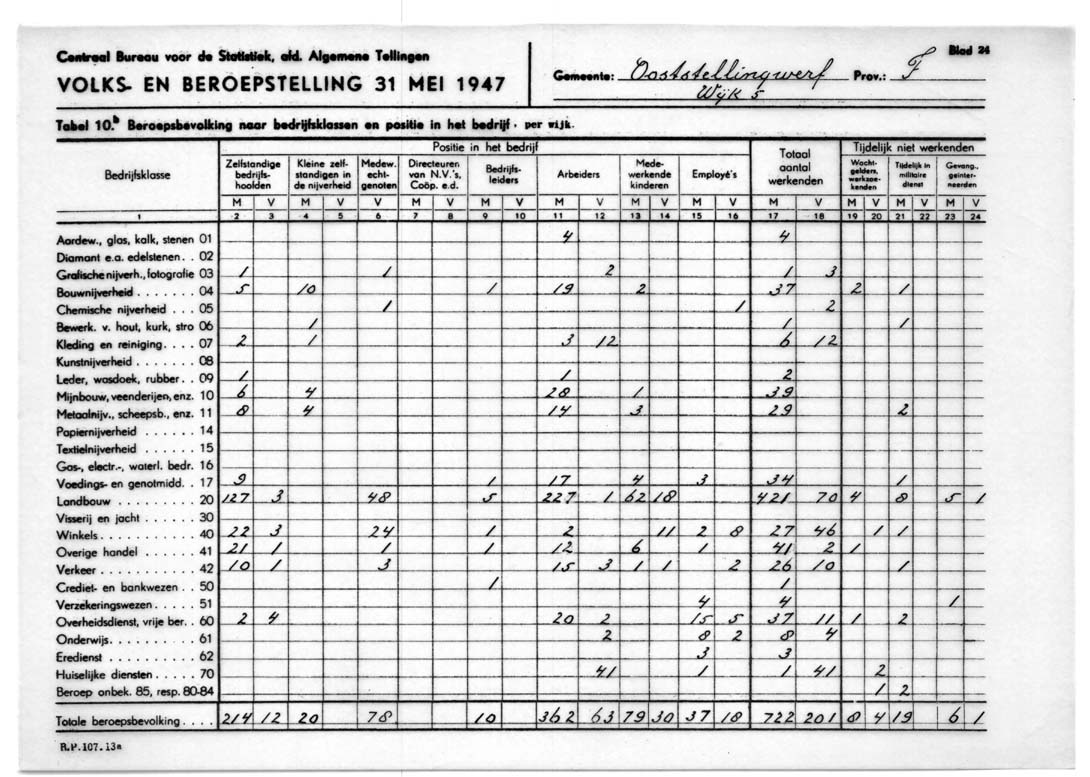 Centraal Bureau voor de Statistiek, afd. Algemene Tellingen
Blad 24
VOLKS- EN BEROEPSTELLING 31 MEI 1947
Gemeente: Ooststellingwerf Prov.: F
Wijk 5
Tabel 10.b Beroepsbevolking naar bedrijfsklassen en positie in het bedrijf, per wijk.
Bedrijfsklasse Positie in het bedrijf Totaal aantal werkenden Tijdelijk niet werkenden
Zelfstandige bedrijfs- hoofden Kleine zelf- standigen in de nijverheid Medew. echt- genoten Directeuren van N.V.'s, Coöp. e.d. Bedrijfs- leiders Arbeiders Mede- werkende kinderen Employé's Wacht- gelders, werkzoe- kenden Tijdelijk in militaire dienst Gevang., geïnter- neerden
M V M V V M V M V M V M V M V M V M V M V M V
1 2 3 4 5 6 7 8 9 10 11 12 13 14 15 16 17 18 19 20 21 22 23 24
Aardew., glas, kalk, stenen 01 4 4
Diamant e.a. edelstenen. . 02
Grafische nijverh., fotografie 03 1 1 2 1 3
Bouwnijverheid . . . . . . . 04 5 10 1 19 2 37 2 1
Chemische nijverheid . . . 05 1 1 2
Bewerk. v. hout, kurk, stro 06 1 1 1
Kleding en reiniging. . . . 07 2 1 3 12 6 12
Kunstnijverheid . . . . . . 08
Leder, wasdoek, rubber. . 09 1 1 2
Mijnbouw, veenderijen, enz. 10 6 4 28 1 39
Metaalnijv., scheepsb., enz. 11 8 4 14 3 29 2
Papiernijverheid . . . . . . 14
Textielnijverheid . . . . . . 15
Gas-, electr.-, waterl. bedr. 16
Voedings- en genotmidd. . 17 9 1 17 4 3 34 1
Landbouw . . . . . . . . . 20 127 3 48 5 227 1 62 18 421 70 4 8 5 1
Visserij en jacht . . . . . . 30
Winkels. . . . . . . . . . . 40 22 3 24 1 2 11 2 8 27 46 1 1
Overige handel . . . . . . 41 21 1 1 1 12 6 1 41 2 1
Verkeer . . . . . . . . . . . 42 10 1 3 15 3 1 1 2 26 10 1
Crediet- en bankwezen . . 50 1 1
Verzekeringswezen. . . . . 51 4 4 1
Overheidsdienst, vrije ber. . 60 2 4 20 2 15 5 37 11 1 2
Onderwijs. . . . . . . . . . 61 2 8 2 8 4
Eredienst . . . . . . . . . . 62 3 3
Huiselijke diensten . . . . 70 41 1 1 41 2
Beroep onbek. 85, resp. 80-84 1 2
Totale beroepsbevolking . . . . 214 12 20 78 10 362 63 79 30 37 18 722 201 8 4 19 6 1
R.P.107.13a